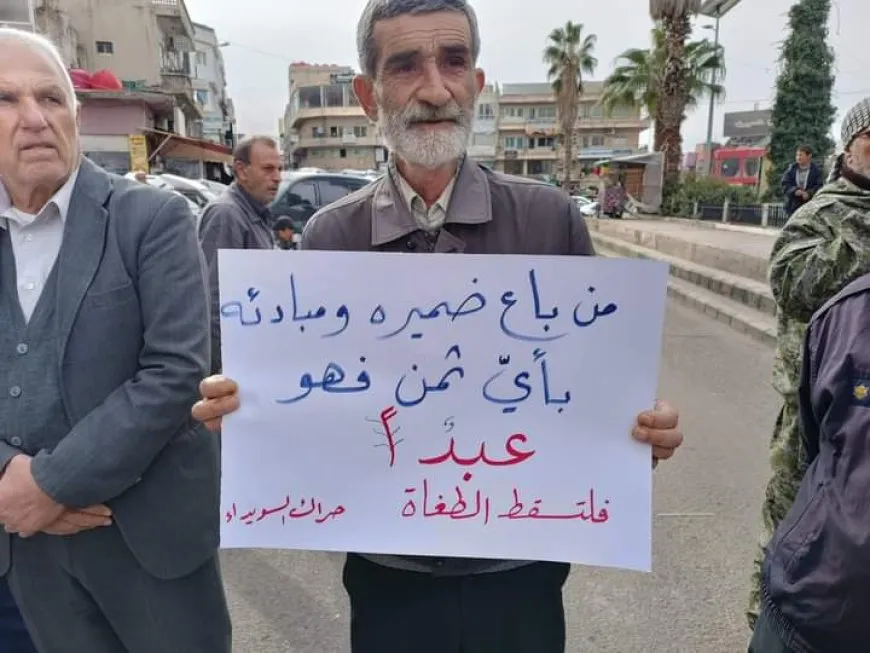 من باع ضميره ومبادئه
بأيّ ثمن فهو
عبدٌ اً
فلتسقط الطغاة حراك السويداء